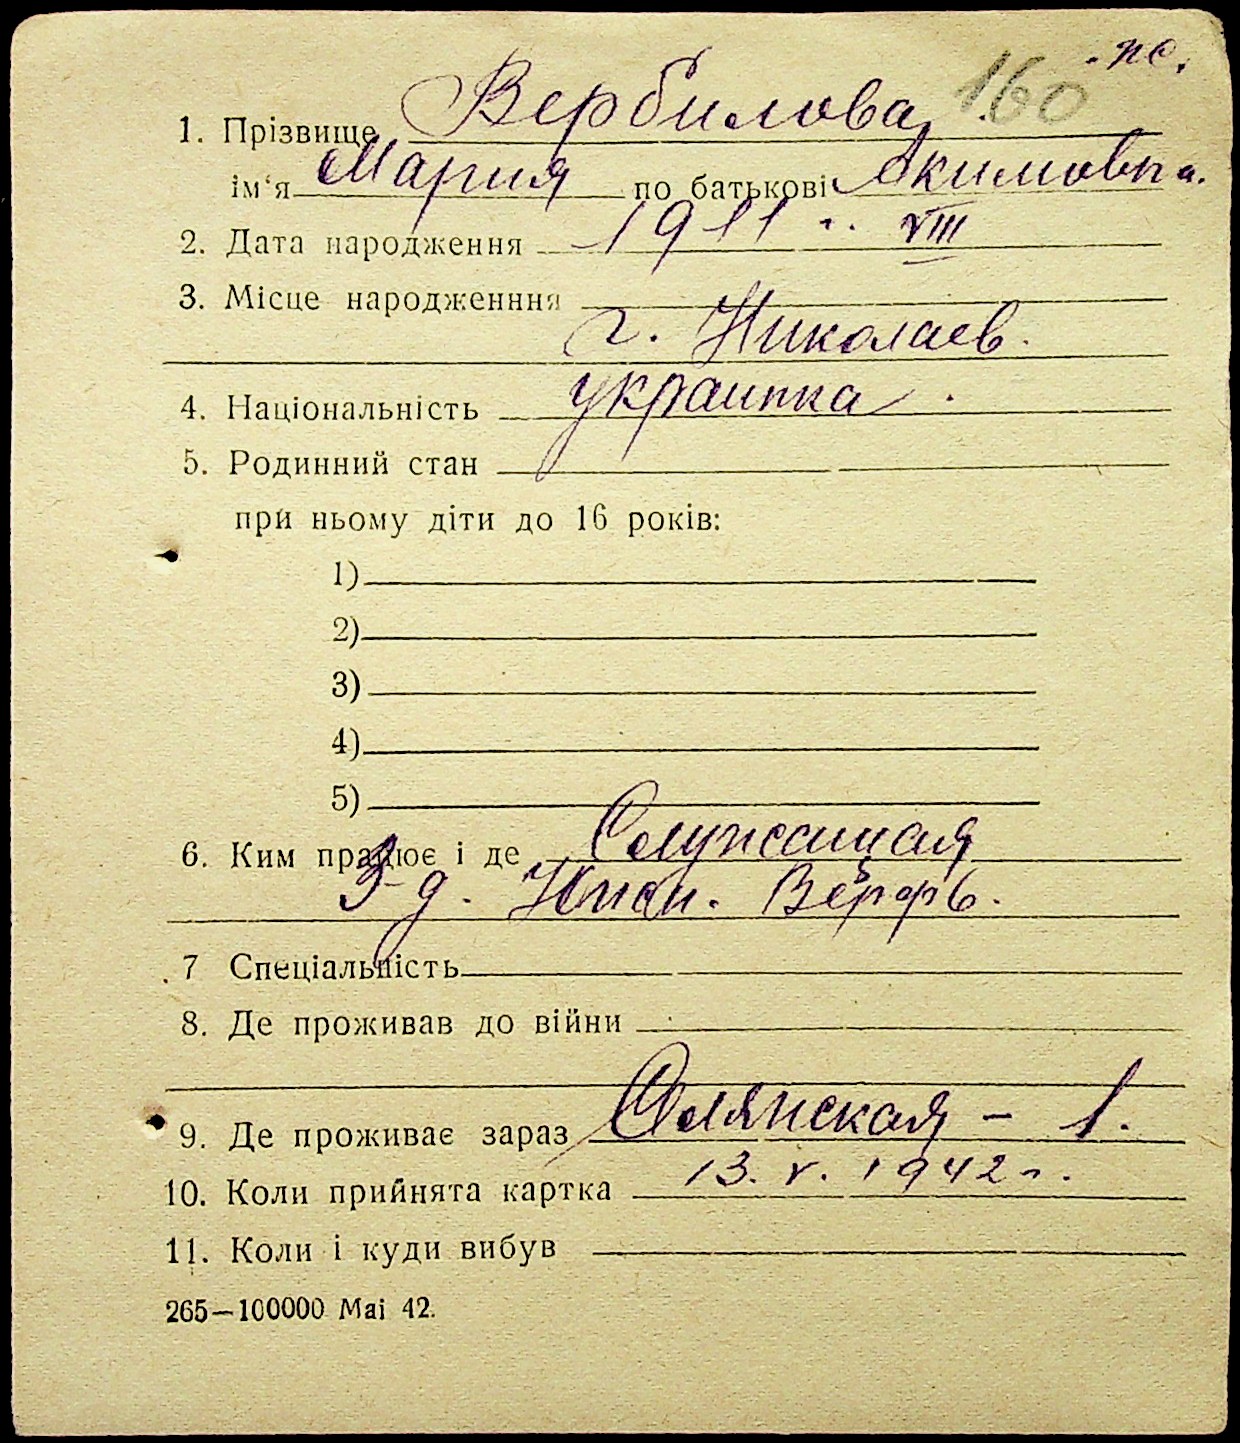 160 . пс.
1. Прізвище Вербилова
ім‘я Мария по батькові Акимовна.
2. Дата народження 1911 г. VIII
3. Місце народженння
г. Николаев.
4. Національність украинка.
5. Родинний стан
при ньому діти до 16 років:
1)
2)
3)
4)
5)
6. Ким працює і де Служащая
З-д. Южн. Верфь.
7 Спеціальність
8. Де проживав до війни
9. Де проживає зараз - 1.
10. Коли прийнята картка 13. V. 1942 г.
11. Коли і куди вибув
265—100000 Mai 42.